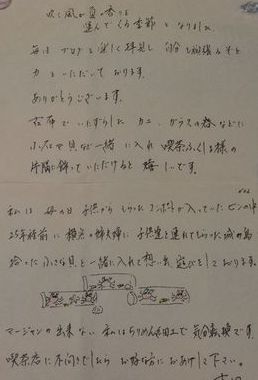 吹く風が夏の香りを
運んでくる季節となりました
毎日ブログを楽しく拝見し 自分も頑張るぞと
力をいただいております。
ありがとうございます。
古布でいたずらした カニ、ガラスの器などに
小石や貝など一緒に入れ 喫茶ふくしま様の
片隅に飾っていただけると 嬉しいです。
私は 母の日 子供から もらった が入っていた ビンの中
25年程前に 横浜の姉夫婦に 子供達を連れてもらった 城ヶ島
拾った 小さな貝と 一緒に入れて想い出 遊びをしております。
マージャンの出来ない 私はちりめん細工で 気分転換です。
喫茶店に不向きでしたら お好きな方に おあげして下さい。